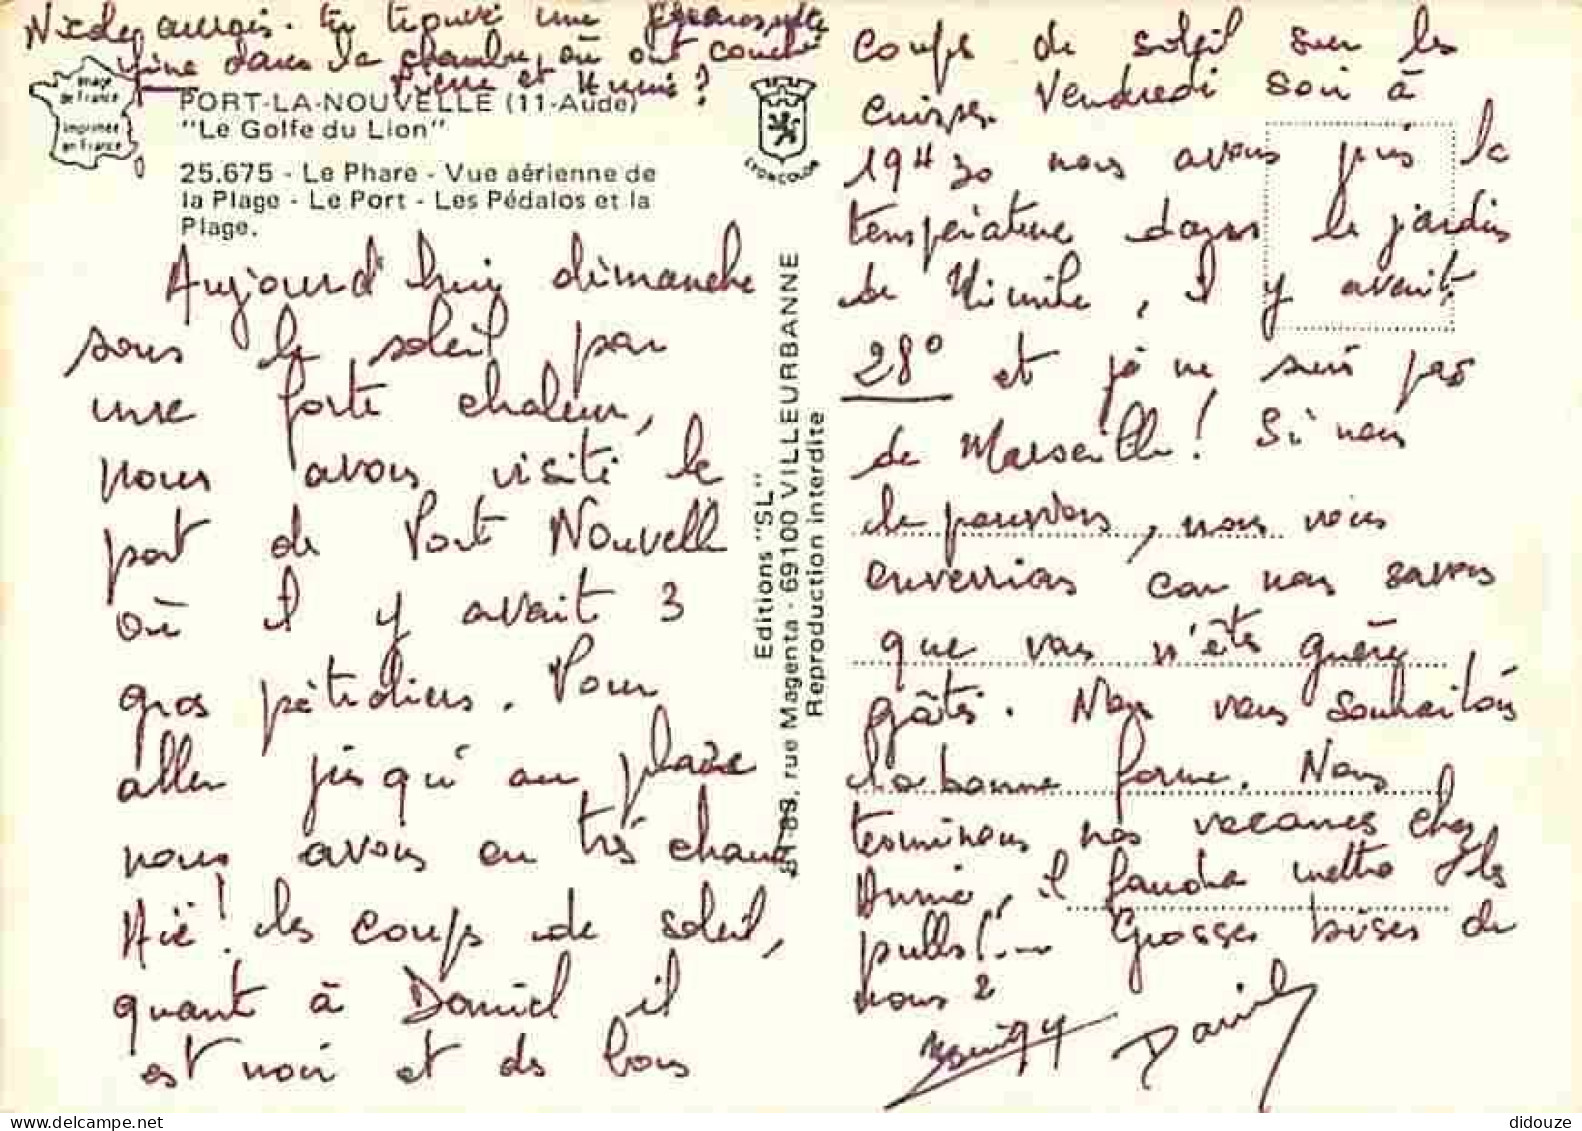 Nicole aurais-tu trouvé une
fine dans la chambre où ont couché
Pierre et Mimi ?
Image
de France
Imprimée
en France
PORT-LA-NOUVELLE (11-Aude)
"Le Golfe du Lion"
25.675 - Le Phare - Vue aérienne de
la Plage - Le Port - Les Pédalos et la
Plage.
LYONCOLOR
Aujourd'hui dimanche
sous le soleil par
une forte chaleur,
nous avons visité le
port de Port Nouvelle
où il y avait 3
gros pétroliers. Pour
aller jusqu'au phare
nous avons eu très chaud
Aïe! les coups de soleil,
quant à Daniel il
est noir et des bons
Editions "SL"
81-83, rue Magenta - 69100 VILLEURBANNE
Reproduction interdite
coups de soleil sur les
cuisses. Vendredi soir à
19H30 nous avons pris la
température dans le jardin
de Mimile, il y avait
28° et je ne suis pas
de Marseille! Si nous
le pouvions, nous vous
enverrions car nous savons
que vous n'êtes guère
gâtés. Nous vous souhaitons
la bonne forme. Nous
terminons nos vacances chez
Annie, il faudra mettre les
pulls!... Grosses bises de
nous 2
Daniel
didouze